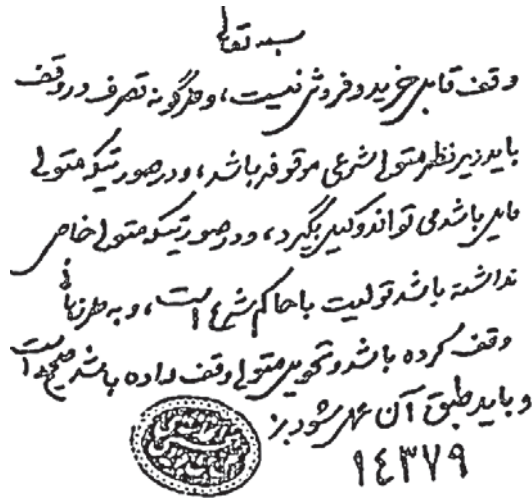 بسمه تعالی
وقف قابل خرید و فروش نیست، و هرگونه تصرف در وقف
باید زیر نظر متولی شرعی موقوفه باشد، و در صورتیکه متولی
مایل باشد می تواند وکیل بگیرد، و در صورتیکه متولی خاص
نداشته باشد تولیت با حاکم شرع است، و به هر زبانی
وقف کرده باشد و تحویل متولی وقف داده باشد صحیح است
و باید طبق آن عمل شود
۱٤۳۷۹